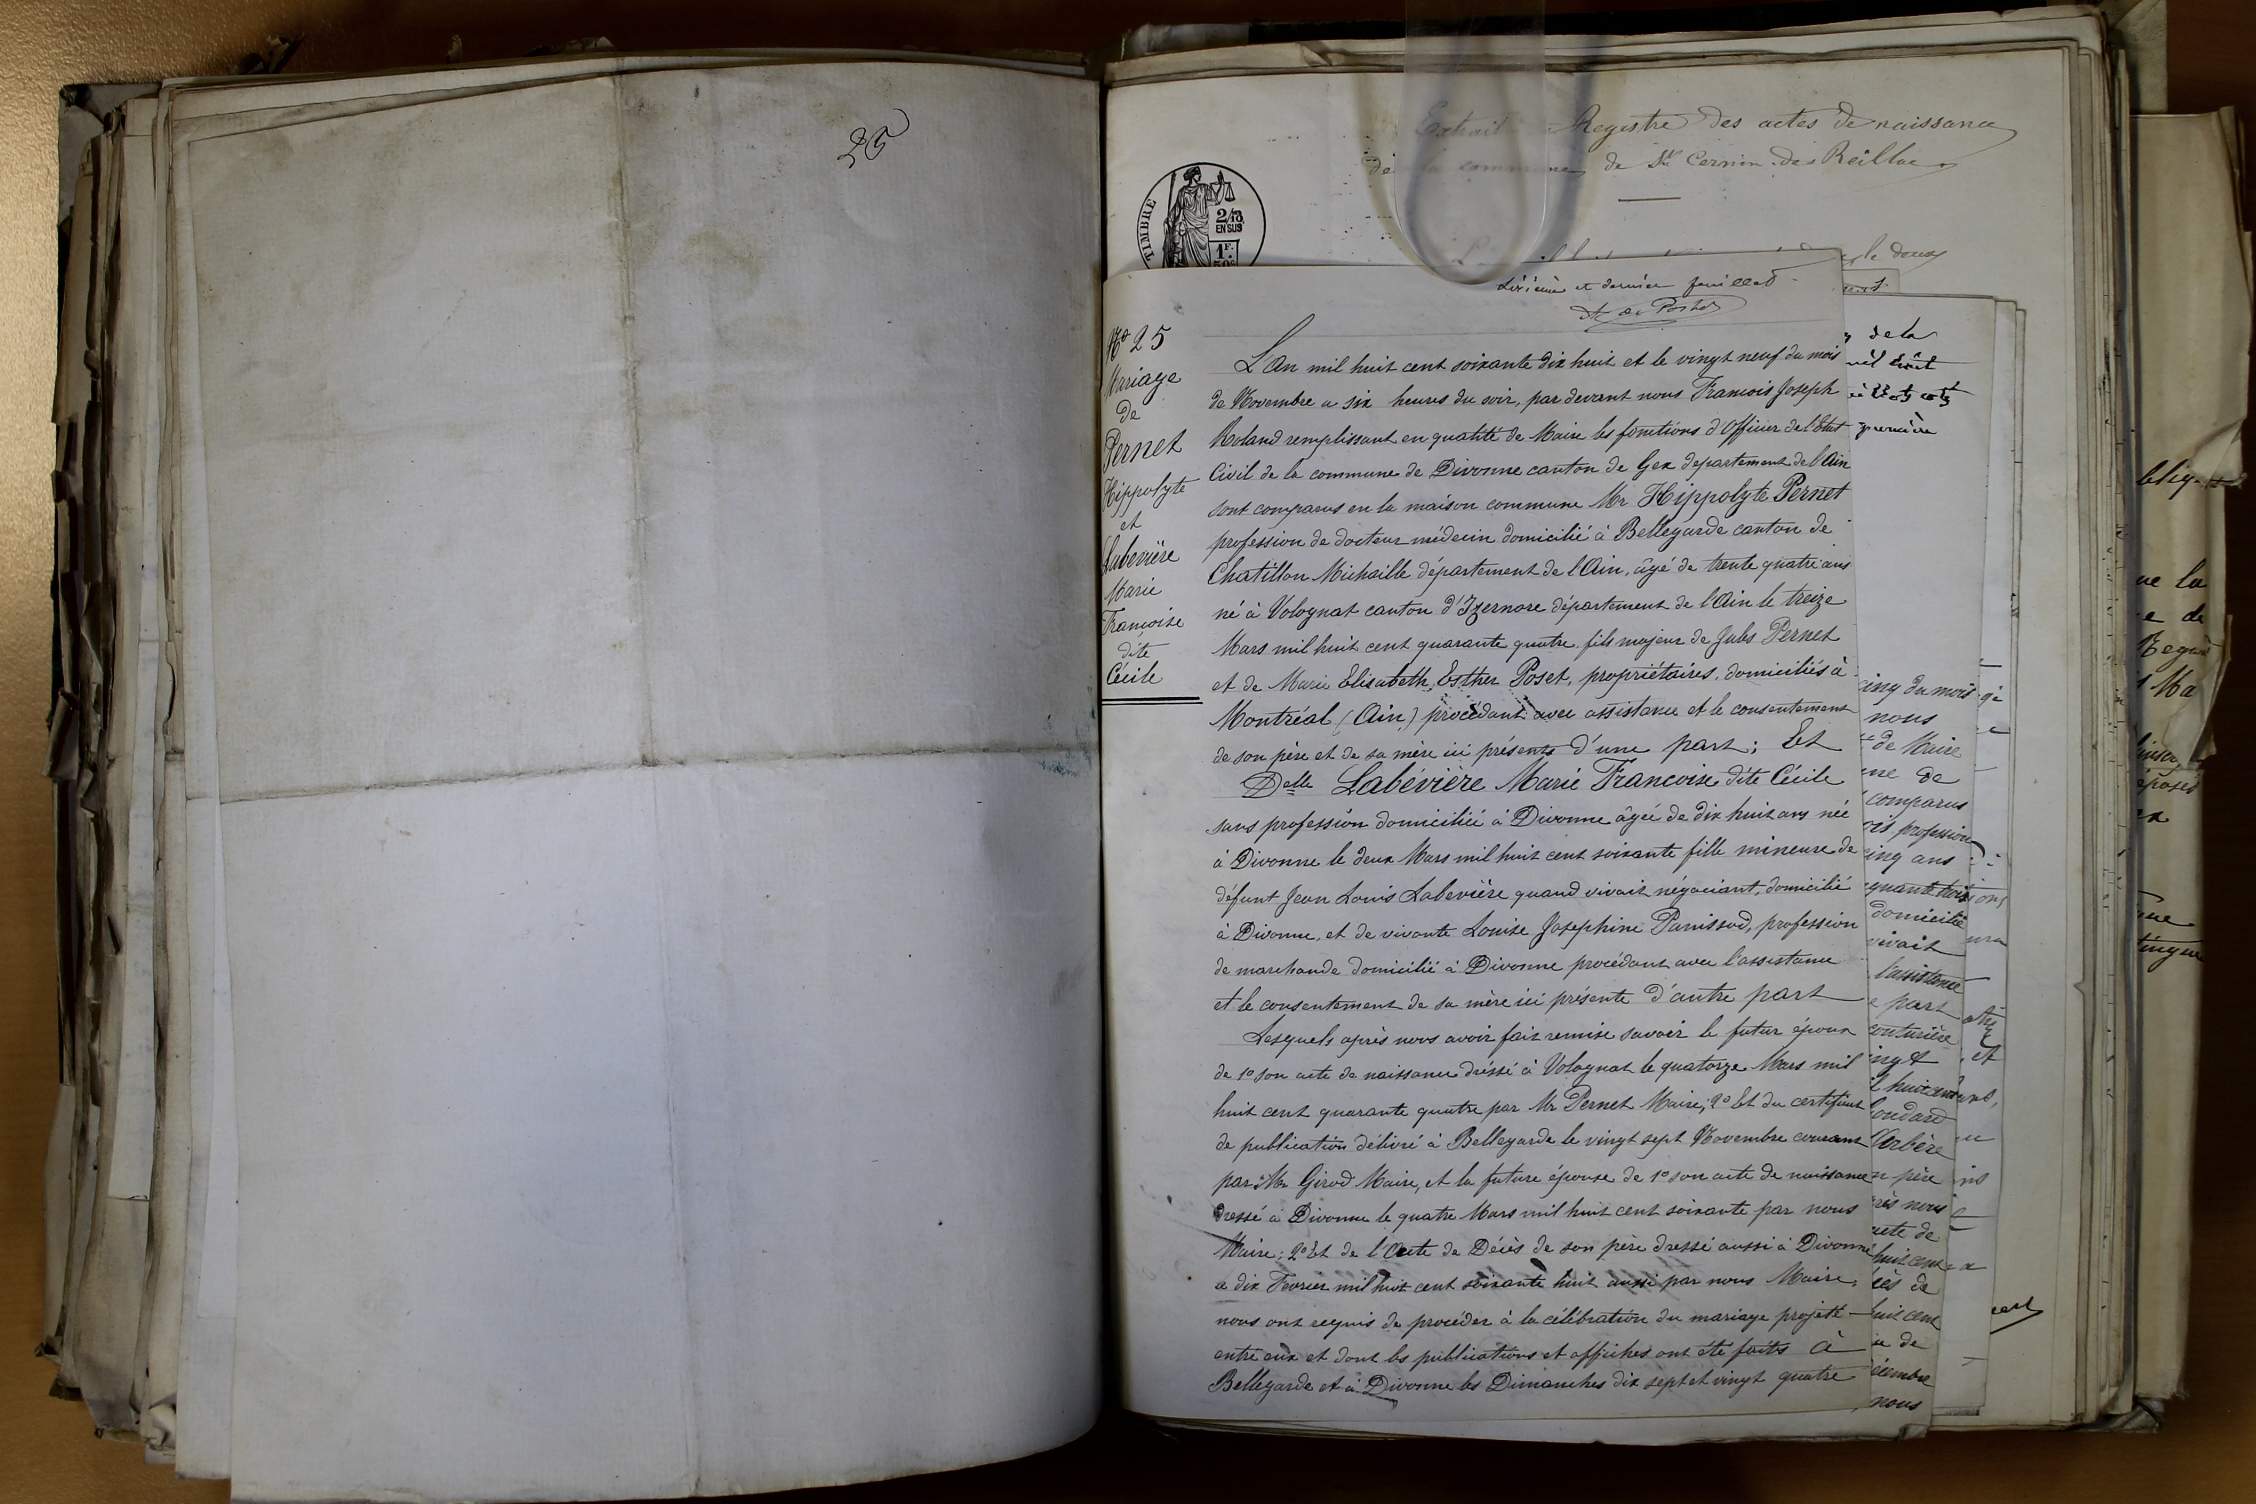 25
Extrait Registre des actes de naissance
de la commune de St Cernin de Reillac
TIMBRE
2/10
EN SUS
1F.
50c
le douze
et dernier feuillet
No 25
Mariage
de
Pernet
Hippolyte
et
Labevière
Marie
Françoise
dite
Cécile
L'An mil huit cent soixante dix huit et le vingt neuf du mois
de Novembre a six heures du soir, par devant nous Francois Joseph
Roland remplissant en qualité de Maire les fonctions d'Officier de l'Etat
Civil de la commune de Divonne canton de Gex departement de l'Ain
sont comparus en la maison commune Mr Hippolyte Pernet
profession de docteur médecin domicilié à Bellegarde canton de
Chatillon Michaille département de l'Ain, âgé de trente quatre ans
né à Volognat canton d'Izernore département de l'Ain le treize
Mars mil huit cent quarante quatre fils majeur de Jules Pernet
et de Marie Elisabeth Esther Poset, propriétaires, domiciliés à
Montréal (Ain) procédant avec assistance et le consentement
de son père et de sa mère ici présents d'une part; Et
Delle Labévière Marie Francoise dite Cécile
sans profession domiciliée à Divonne âgée de dix huit ans née
à Divonne le deux Mars mil huit cent soixante fille mineure de
défunt Jean Louis Labevière quand vivait négociant, domicilié
à Divonne, et de vivante Louise Josephine Panissod, profession
de marchande domicilié à Divonne procédant avec l'assistance
et le consentement de sa mère ici présente d'autre part
Lesquels après nous avoir fait remise savoir le futur époux
de 1o son acte de naissance dréssé à Volognat le quatorze Mars mil
huit cent quarante quatre par Mr Pernet Maire; 2o Et du certificat
de publication délivré à Bellegarde le vingt sept Novembre courant
par Mr Girod Maire, et la future épouse de 1o son acte de naissance
dressé à Divonne le quatre Mars mil huit cent soixante par nous
Maire; 2o Et de l'Acte de Décès de son père dressé aussi à Divonne
a dix Fevrier mil huit cent soixante huit aussi par nous Maire;
nous ont requis de procéder à la célébration du mariage projeté
entre eux et dont les publications et affiches ont été faites à
Bellegarde et à Divonne les Dimanches dix sept et vingt quatre
de la
première
cinq du mois
nous
de Maire
de
comparus
profession
cinq ans
domicilié
vivait
l'assistance
part
couturière
huit cent
père
nous
acte de
huit cent
de
huit cent
de
nous
et
ns
ue la
e de